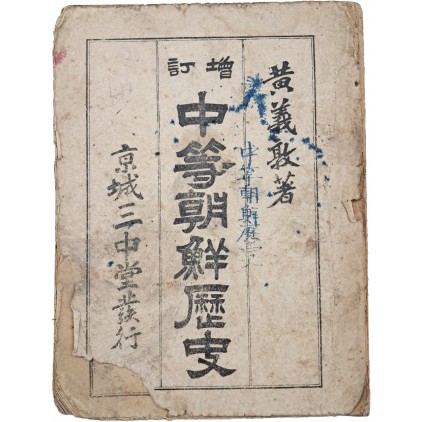 黃義敦著
增訂
中等朝鮮歷史
中等朝鮮歷
京城三中堂發行